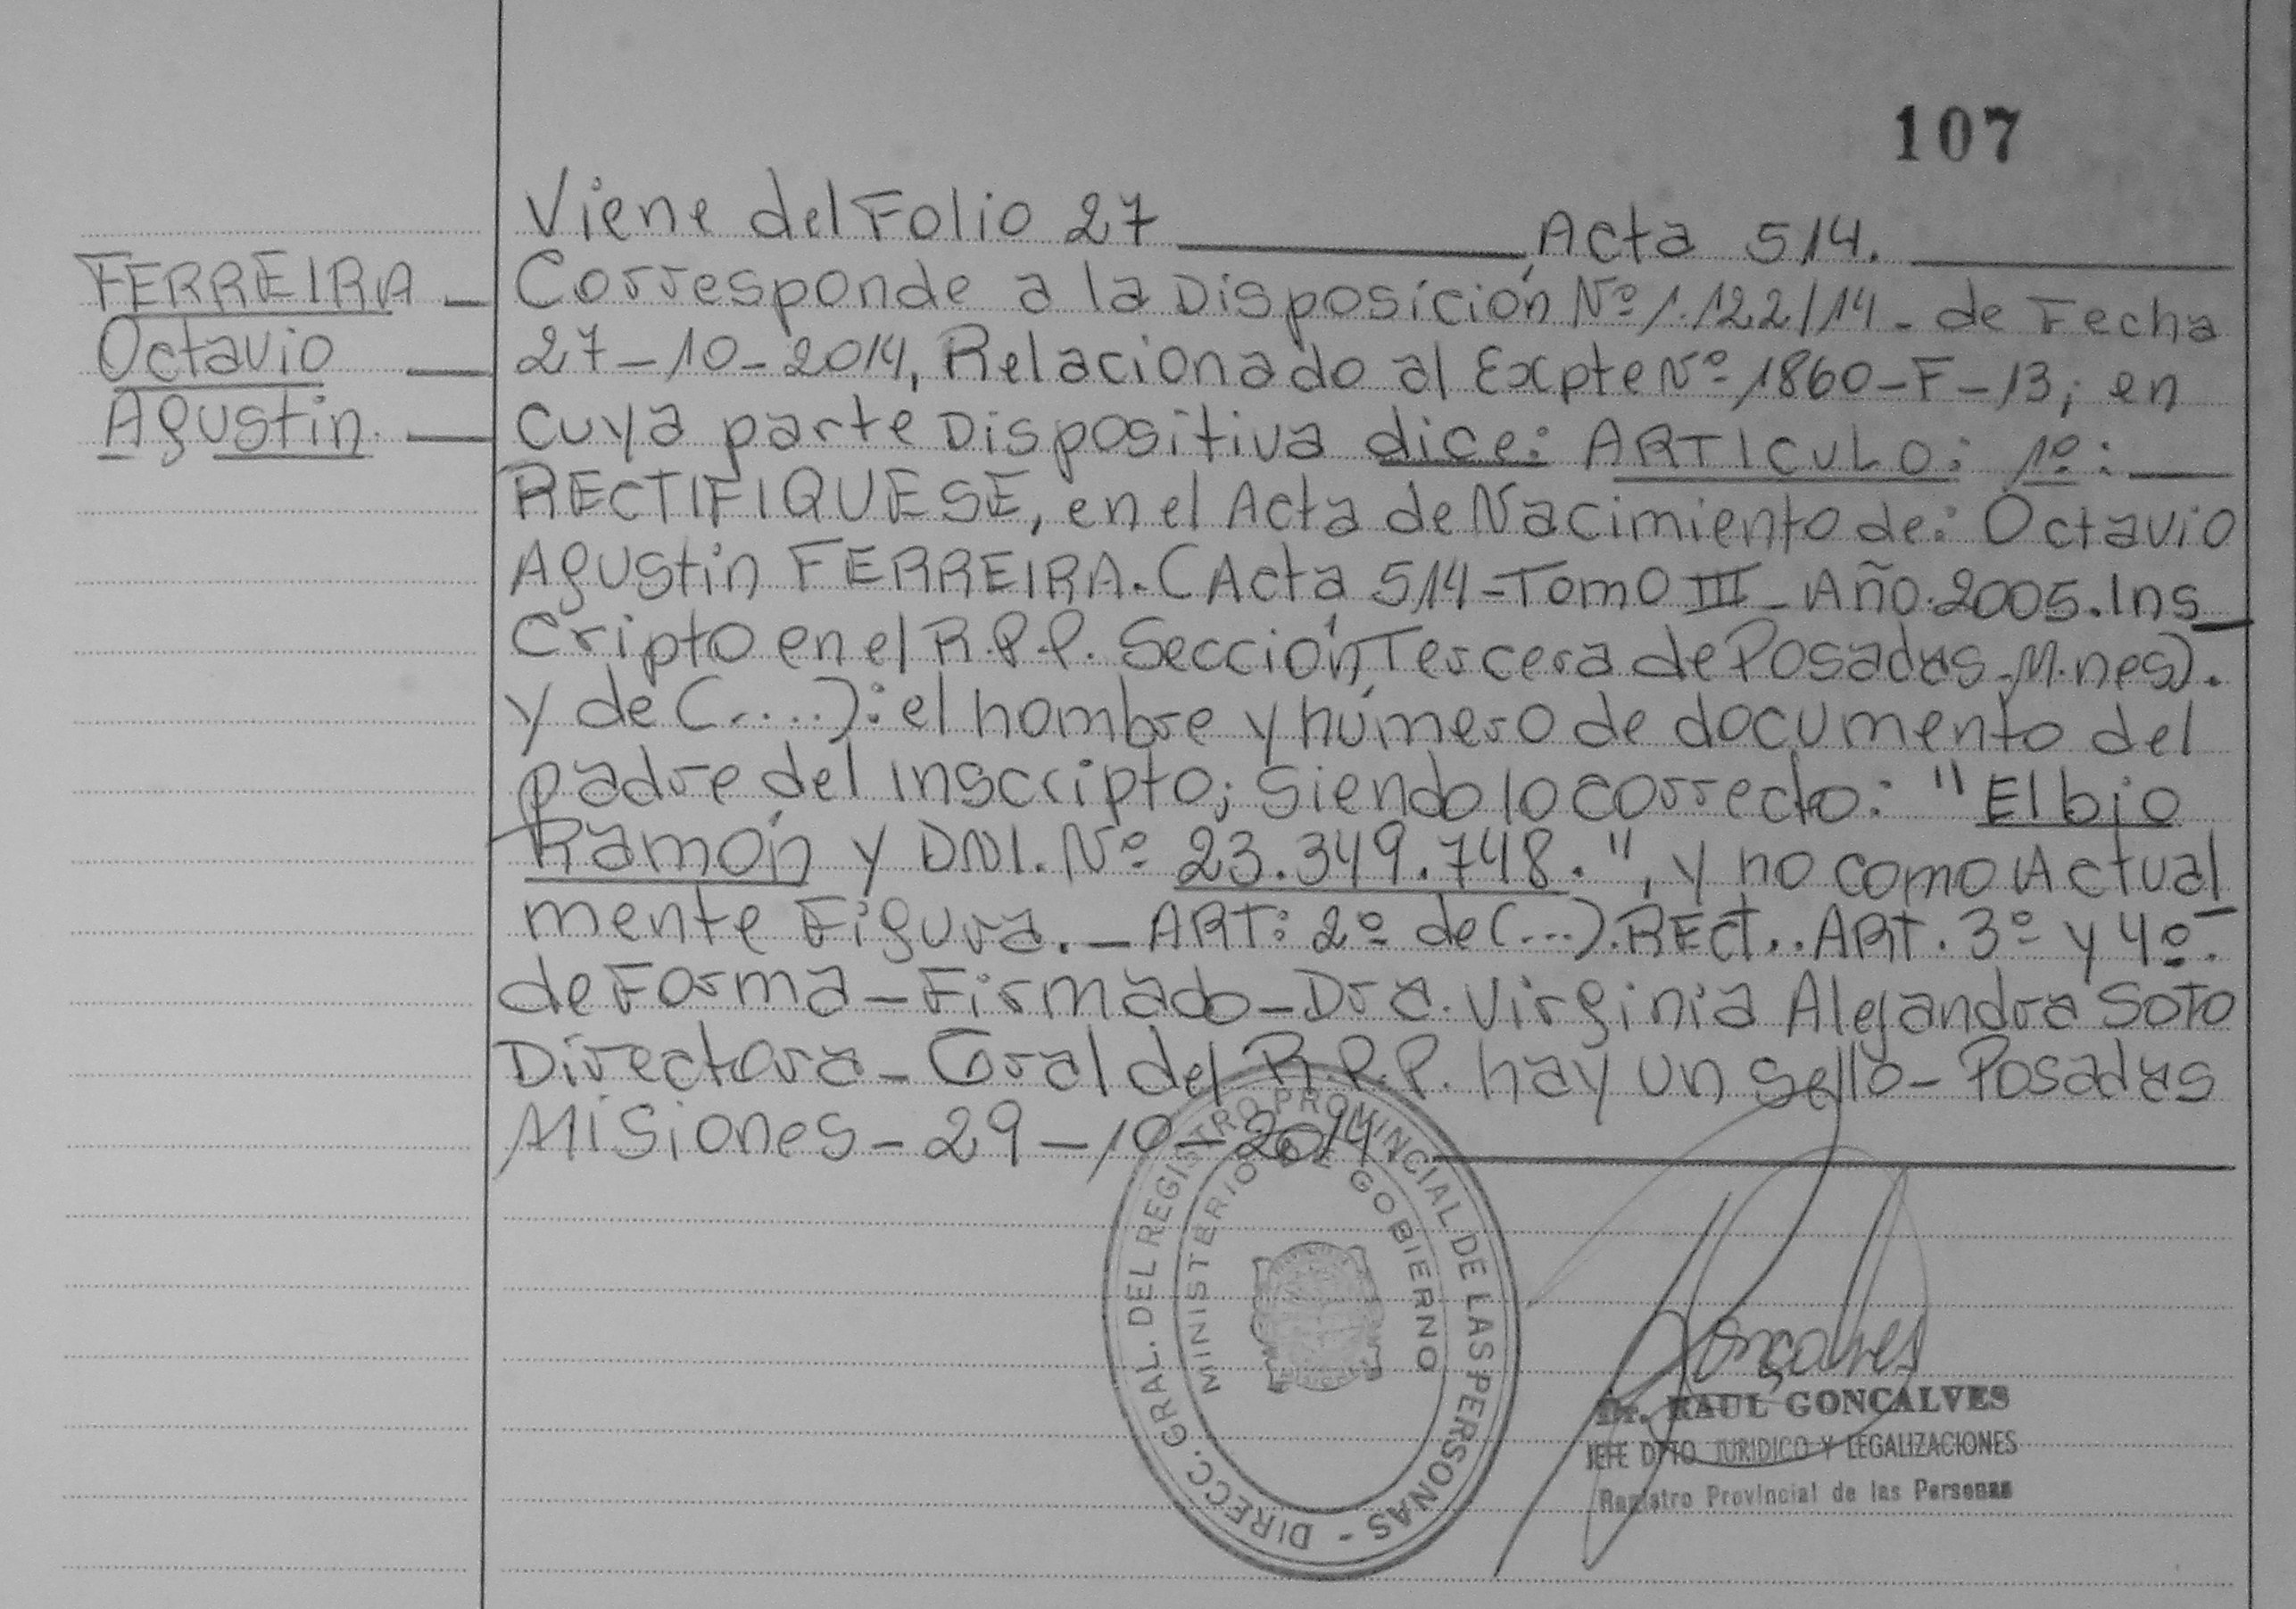 107
Viene del Folio 27 ______ Acta 514. ______
FERREIRA _
Octavio _
Agustin. _
Corresponde a la Disposición Nº 1.122/14 - de Fecha
27-10-2014, Relacionado al Expte Nº 1860-F-13; en
cuya parte Dispositiva dice: ARTICULO: 1º: _
RECTIFIQUESE, en el Acta de Nacimiento de: Octavio
Agustin FERREIRA. (Acta 514-Tomo III_Año.2005.Ins_
Cripto en el R.P.P. Sección Tercera de Posadas-M.nes).
y de (....): el nombre y número de documento del
padre del inscripto; siendo lo correcto: "Elbio
Ramón y DNI. Nº 23.349.748.", y no como Actual_
mente Figura._ART: 2º de (...).RECt.. ART. 3º y 4º.
de Forma-Firmado-Dra. Virginia Alejandra Soto
Directora-Gral del R.P.P. hay un sello-Posadas
Misiones-29-10-2014. ______
DIRECC. GRAL. DEL REGISTRO PROVINCIAL DE LAS PERSONAS -
MINISTERIO DE GOBIERNO
MISIONES
Gonçalves
Dr. RAUL GONCALVES
JEFE DPTO JURIDICO Y LEGALIZACIONES
Registro Provincial de las Personas